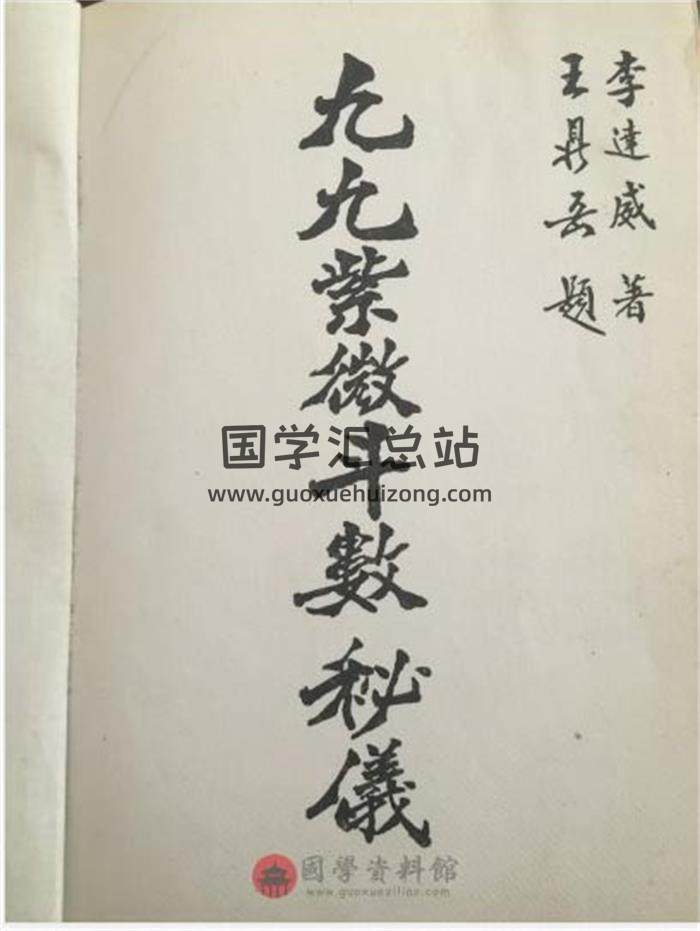 李達威 著
王鼎岳 題
九九紫微斗數秘儀
国学汇总站
www.guoxuehuizong.com
國學資料館
www.guoxueziliao.com